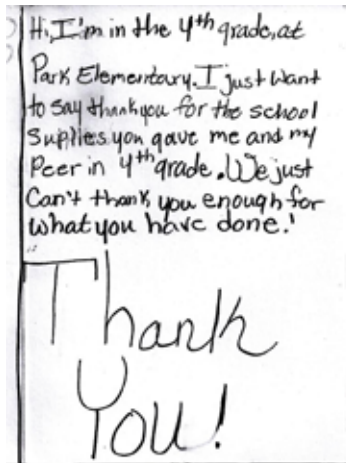 Hi, I'm in the 4th grade, at
Park Elementary. I just want
to say thankyou for the school
Supplies you gave me and my
Peer in 4th grade. We just
Can't thank you enough for
what you have done!
Thank
You!